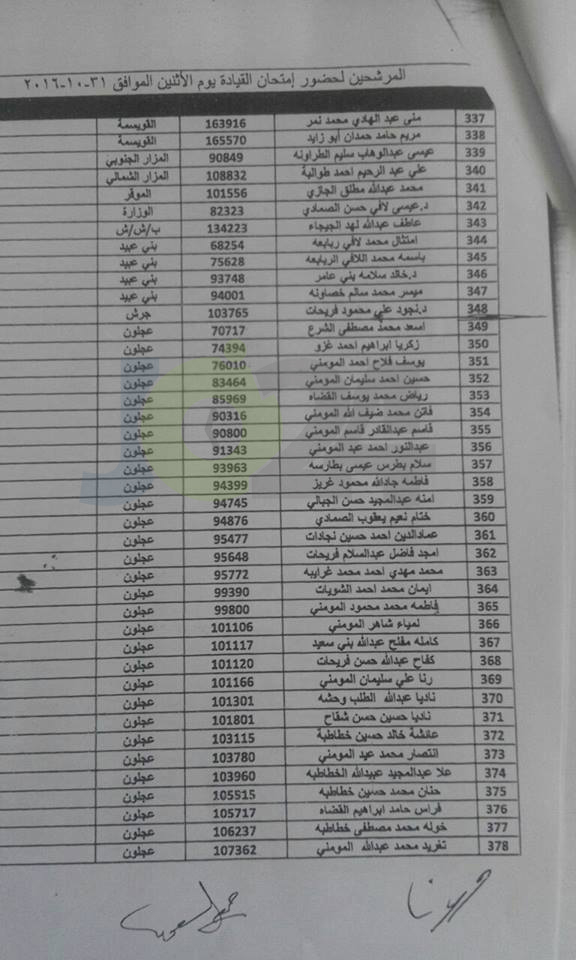 المرشحين لحضور إمتحان القيادة يوم الأثنين الموافق ٣١-١٠-٢٠١٦
337 منى عبد الهادي محمد نمر 163916 القويسمة
338 مريم حامد حمدان أبو زايد 165570 القويسمة
339 عيسى عبدالوهاب سليم الطراونه 90849 المزار الجنوبي
340 علي عبد الرحيم احمد طوالبة 108832 المزار الشمالي
341 محمد عبدالله مطلق الجازي 101556 الموقر
342 د.عيسى لافي حسن الصمادي 82323 الوزارة
343 عاطف عبدالله لهد الجيجاء 134223 ب/ش/ش
344 امتثال محمد لافي ربابعه 68254 بني عبيد
345 باسمه محمد اللافي الربابعه 75628 بني عبيد
346 د.خالد سلامه بني عامر 93748 بني عبيد
347 ميسر محمد سالم خصاونه 94001 بني عبيد
348 د.نجود علي محمود فريحات 103765 جرش
349 اسعد محمد مصطفى الشرع 70717 عجلون
350 زكريا ابراهيم احمد غزو 74394 عجلون
351 يوسف فلاح احمد المومني 76010 عجلون
352 حسين احمد سليمان المومني 83464 عجلون
353 رياض محمد يوسف القضاه 85969 عجلون
354 فاتن محمد ضيف الله المومني 90316 عجلون
355 قاسم عبدالقادر قاسم المومني 90800 عجلون
356 عبدالنور احمد عبد المومني 91343 عجلون
357 سلام بطرس عيسى بطارسه 93963 عجلون
358 فاطمه جادالله محمود غريز 94399 عجلون
359 امنه عبدالمجيد حسن الجبالي 94745 عجلون
360 ختام نعيم يعقوب الصمادي 94876 عجلون
361 عمادالدين احمد حسين نجادات 95477 عجلون
362 امجد فاضل عبدالسلام فريحات 95648 عجلون
363 محمد مهدي احمد محمد غرايبه 95772 عجلون
364 ايمان محمد احمد الشويات 99390 عجلون
365 فاطمه محمد محمود المومني 99800 عجلون
366 لمياء شاهر المومني 101106 عجلون
367 كامله مفلح عبدالله بني سعيد 101117 عجلون
368 كفاح عبدالله حسن فريحات 101120 عجلون
369 رنا علي سليمان المومني 101166 عجلون
370 ناديا عبدالله الطلب وحشه 101301 عجلون
371 ناديا حسين حسن شقاح 101801 عجلون
372 عائشة خالد حسين خطاطبة 103115 عجلون
373 انتصار محمد عيد المومني 103780 عجلون
374 علا عبدالمجيد عبيدالله الخطاطبه 103960 عجلون
375 حنان محمد حسين خطاطبه 105515 عجلون
376 فراس حامد ابراهيم القضاه 105717 عجلون
377 خوله محمد مصطفى خطاطبه 106237 عجلون
378 تغريد محمد عبدالله المومني 107362 عجلون